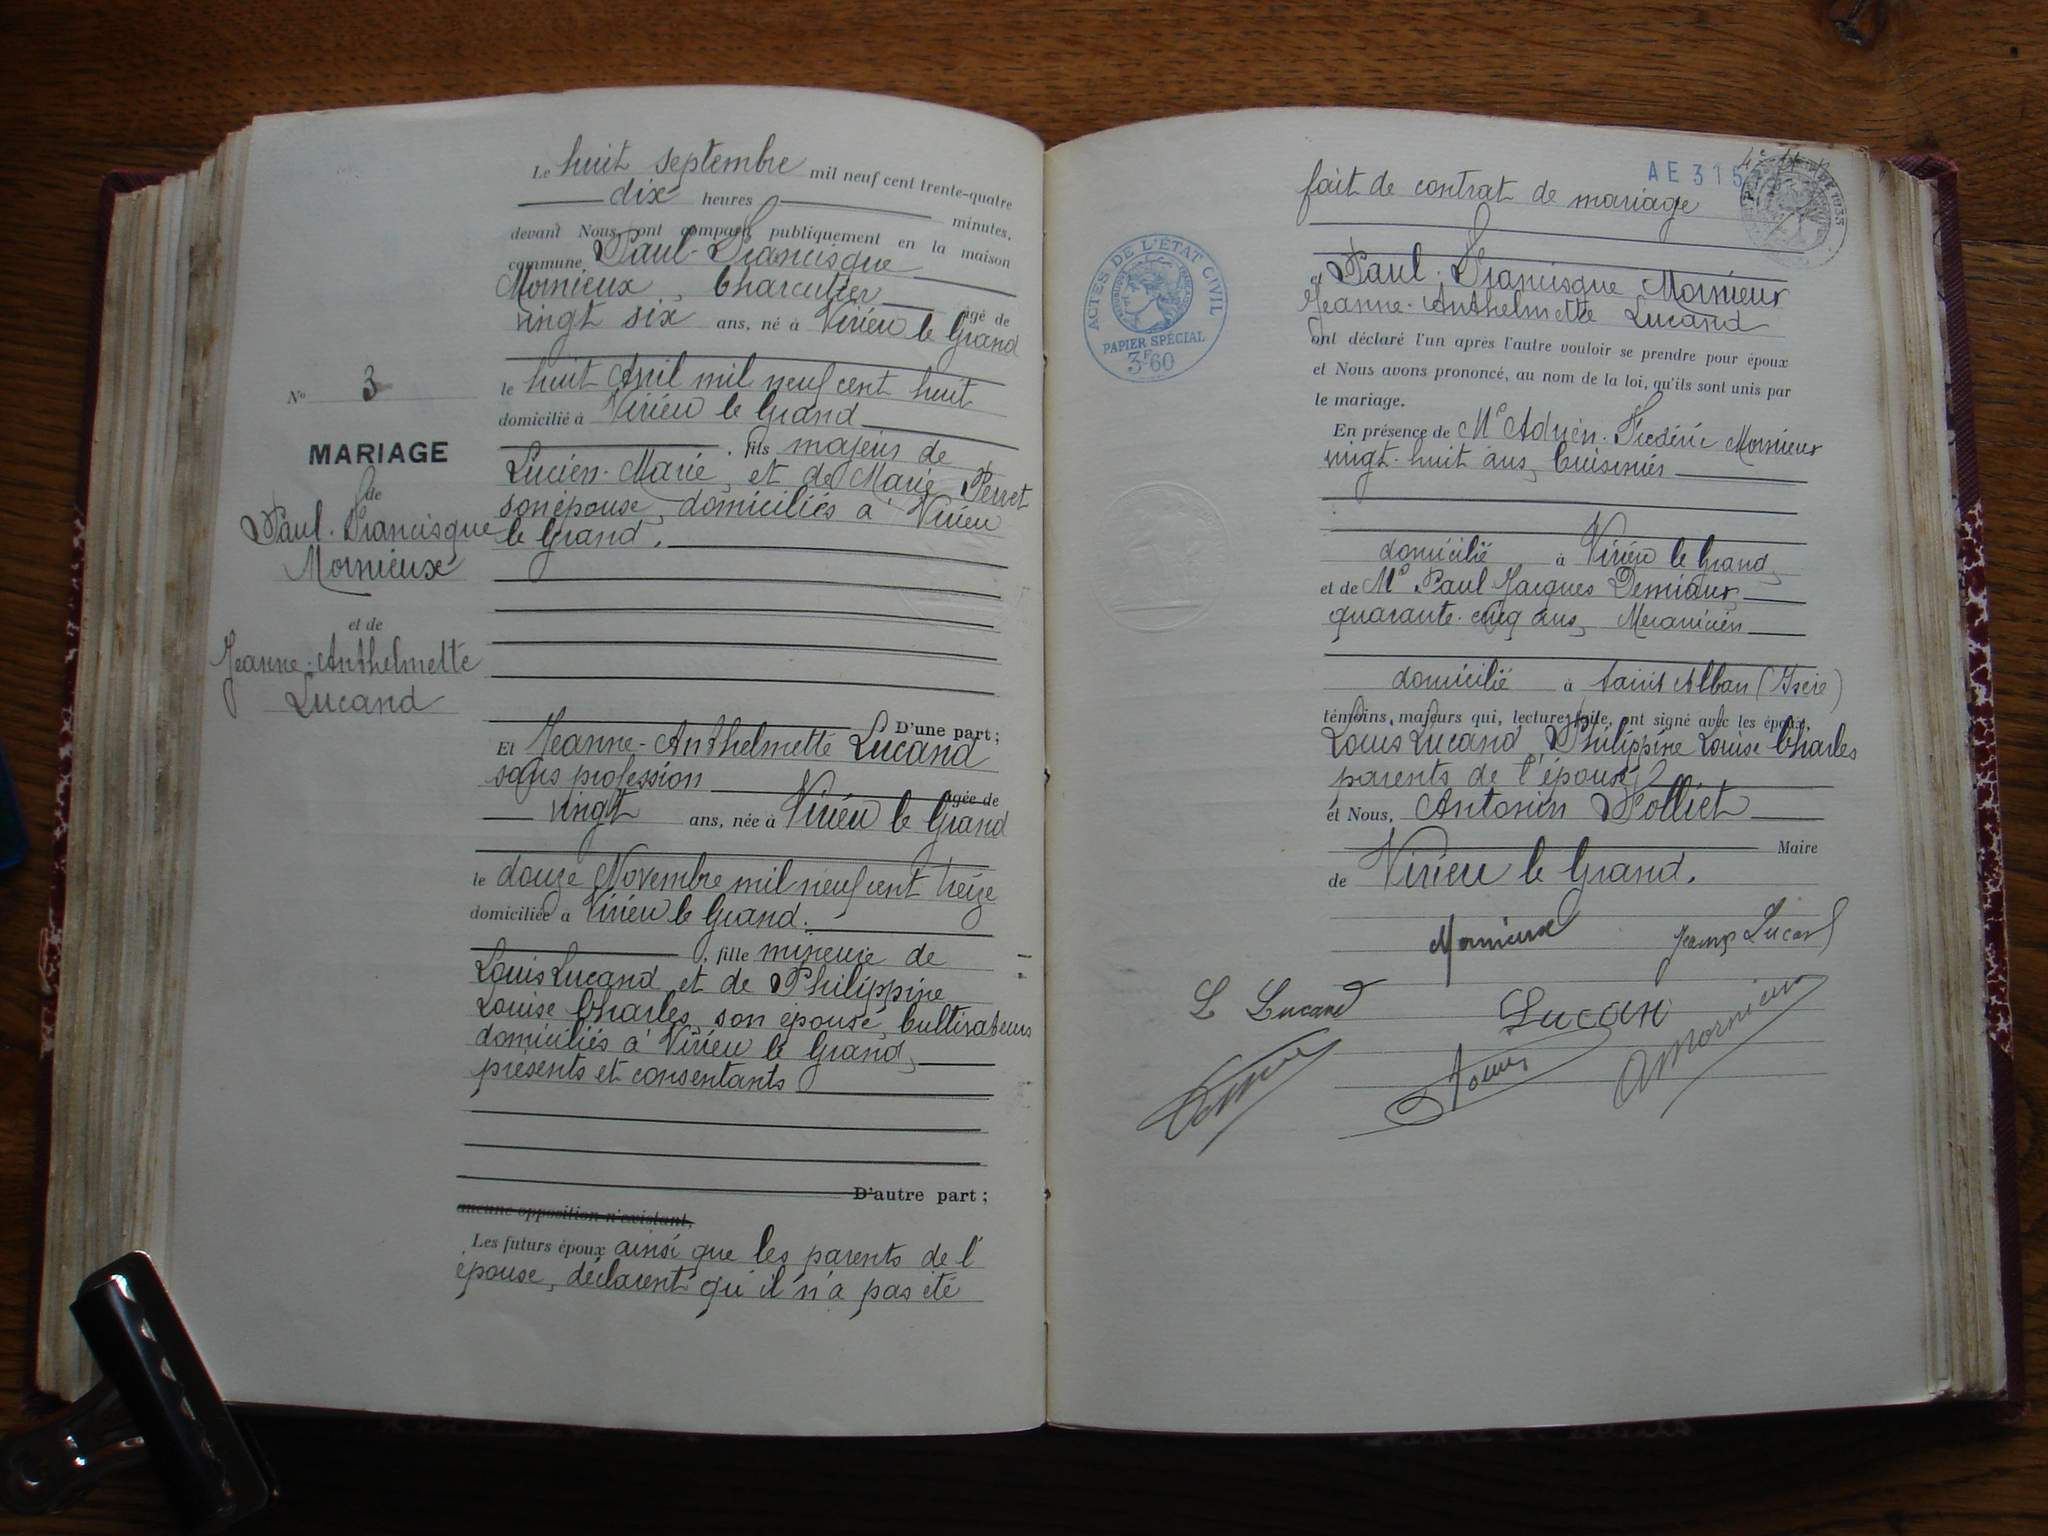 Le huit septembre mil neuf cent trente-quatre
dix heures minutes,
devant Nous ont comparu publiquement en la maison
commune Paul-Francisque
Mornieux, Charcutier âgé de
vingt six ans, né à Virieu le Grand
le huit Avril mil neuf cent huit
domicilié à Virieu le Grand
, fils majeur de
Lucien-Marie et de Marie Perret
son épouse, domiciliés à Virieu
le Grand.
D'une part;
Et Jeanne-Anthelmette Lucand
sans profession agée de
vingt ans, née à Virieu le Grand
le douze Novembre mil neuf cent treize
domiciliée à Virieu le Grand.
, fille mineure de
Louis Lucand et de Philippine
Louise Charles, son épouse, Cultivateurs
domiciliés à Virieu le Grand,
présents et consentants
D'autre part;
aucune opposition n'existant,
Les futurs époux ainsi que les parents de l'
épouse, déclarent qu'il n'a pas été
No 3
MARIAGE
de
Paul-Francisque
Mornieux
et de
Jeanne-Anthelmette
Lucand
AE 315
fait de contrat de mariage
ACTES DE L'ÉTAT CIVIL
PAPIER SPÉCIAL
3F60
et Paul-Francisque Mornieux
Jeanne-Anthelmette Lucand
ont déclaré l'un après l'autre vouloir se prendre pour époux
et Nous avons prononcé, au nom de la loi, qu'ils sont unis par
le mariage.
En présence de Mr Adrien-Frédéric Mornieux
vingt-huit ans, Cuisinier
domicilié à Virieu le Grand,
et de Mr Paul Jacques
quarante-cinq ans, Mécanicien
domicilié à Saint Alban (Isère)
témoins majeurs qui, lecture faite, ont signé avec les époux,
Louis Lucand, Philippine Louise Charles
parents de l'épouse
et Nous, Antonin Polliet
Maire
de Virieu le Grand.
Mornieux Jeanne Lucand
L Lucand Lucan
A Mornieux